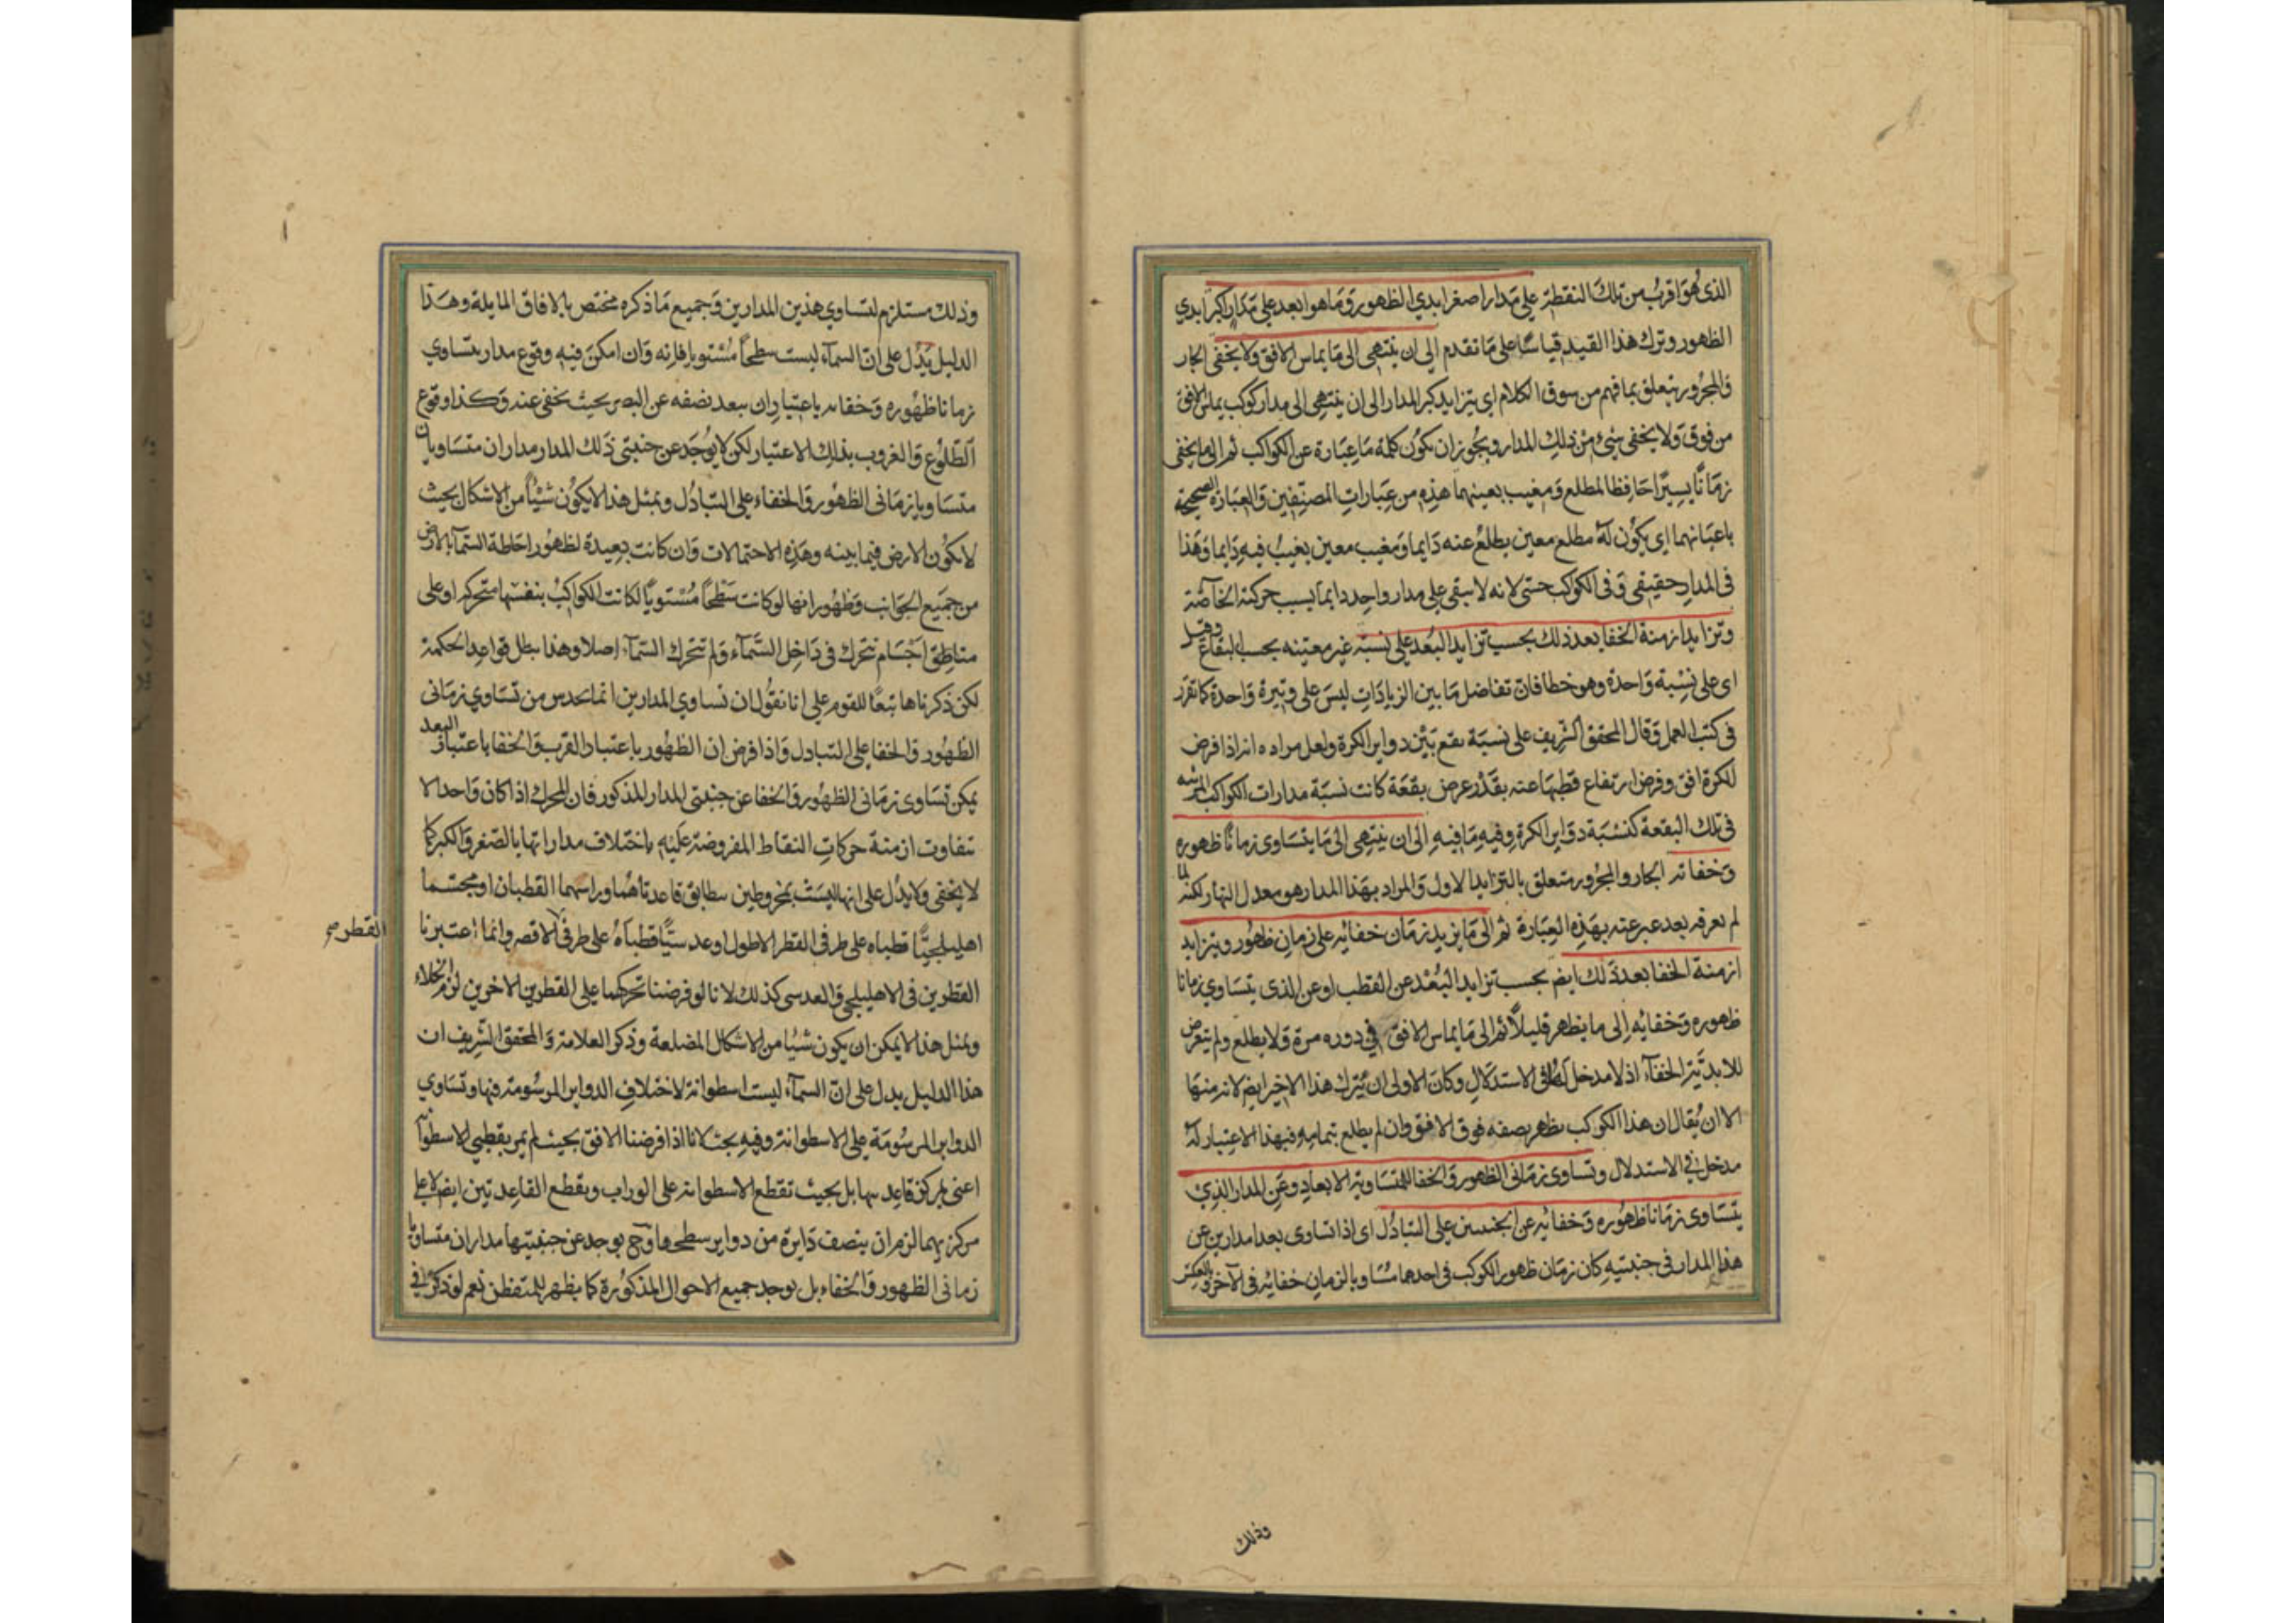 الذى هو اقرب من تلك النقطة على مدار اصغر ابدي الظهور وما هو ابعد على مدار اكبر ابدي
الظهور وترك هذا القيد قياسا على ما تقدم الى ان ينتهى الى ما يماس الافق ولا يخفى الجار
والمجرور يتعلق بما فهم من سوق الكلام اى يتزايد كبر المدار الى ان ينتهى الى مدار كوكب يماس الافق
من فوق ولا يخفى شىء من ذلك المدار ويجوز ان يكون كلمة ما عبارة عن الكواكب ثم الى ما يخفى
زمانا يسيرا حافظا لمطلع ومغيب بعينهما هذه من عبارات المصنفين والعبارة الصحيحة
باعيانهما اى يكون له مطلع معين يطلع عنه دايما ومغيب معين يغيب فيه دايما وهذا
فى المدار حقيقى وفى الكواكب حسى لانه لا يبقى على مدار واحد دايما بسبب حركته الخاصة
وتزايد ازمنة الخفا بعد ذلك بحسب تزايد البعد على نسبة غير معينه بحسب البقاع وقيل
اى على نسبة واحدة وهو خطا فان تفاضل ما بين الزيادات ليس على وتيرة واحدة كما تقرر
فى كتب العمل وقال المحقق الشريف على نسبة تقع بين دواير الكرة ولعل مراده انه اذا فرض
للكرة افق وفرض ارتفاع قطبها عنه بقدر عرض بقعة كانت نسبة مدارات الكواكب المرئيه
فى تلك البقعة كنسبة دواير الكرة وفيه ما فيه الى ان ينتهى الى ما يتساوى زمانا ظهوره
وخفائه الجار والمجرور متعلق بالتزايد الاول والمراد بهذا المدار هو معدل النهار لكنه لما
لم يعرفه بعد عبر عنه بهذه العبارة ثم الى ما يزيد زمان خفائه على زمان ظهور ويتزايد
ازمنة الخفا بعد ذلك ايضا بحسب تزايد البعد عن القطب او عن الذى يتساوي زمانا
ظهوره وخفائه الى ما يظهر قليلا ثم الى ما يماس الافق فى دوره مرة ولا يطلع ولم يتعرض
للابدية الخفآء اذ لا مدخل لها فى الاستدلال وكان الاولى ان يترك هذا الاخير ايضا لانه منها
الا ان يقال ان هذا الكوكب يظهر نصفه فوق الافق وان لم يطلع بتمامه فبهذا الاعتبار له
مدخل فى الاستدلال وتساوى زمانى الظهور والخفا للمتساوية الابعاد وعن المدار الذي
يتساوى زمانا ظهوره وخفائه عن الجنبتين على التبادل اى اذا تساوى بعدا مدارين عن
هذا المدار فى جنبتيه كان زمان ظهور الكوكب فى احدهما مساويا لزمان خفائه فى الآخر وبالعكس
وذلك
وذلك مستلزم لتساوي هذين المدارين وجميع ما ذكره مختص بالافاق المايلة وهذا
الدليل يدل على ان السمآء ليست سطحا مستويا فانه وان امكن فيه وقوع مدار يتساوي
زمانا ظهوره وخفائه باعتبار ان يبعد نصفه عن البصر بحيث يخفى عنه وكذا وقوع
الطلوع والغروب بذلك الاعتبار لكن لا يوجد عن جنبتى ذلك المدار مداران متساويان
متساويا زمانى الظهور والخفاء على التبادل وبمثل هذا لا يكون شيئا من الاشكال بحيث
لا يكون الارض فيما بينه وهذه الاحتمالات وان كانت بعيدة لظهور احاطة السمآء بالارض
من جميع الجوانب وظهور انها لو كانت سطحا مستويا لكانت الكواكب بنفسها متحركه او على
مناطق اجسام تتحرك فى داخل السماء ولم تتحرك السمآء اصلا وهذا يبطل قواعد الحكمة
لكن ذكرناها تبعا للقوم على انا نقول ان تساوي المدارين انما يحدس من تساوي زمانى
الظهور والخفا على التبادل واذا فرض ان الظهور باعتبار القرب والخفا باعتبار البعد
يمكن تساوى زمانى الظهور والخفا عن جنبتى المدار المذكور فان المحرك اذا كان واحدا لا
تتفاوت ازمنة حركات النقاط المفروضة عليه باختلاف مداراتها بالصغر والكبر كما
لا يخفى ولا يدل على انها ليست بمخروطين يطابق قاعدتاهما وراسهما القطبان او مجسما
اهليلجيا قطباه على طرفى القطر الاطول او عدسيا قطباه على طرفى الاقصر وانما اعتبرنا
القطر صح
القطرين فى الاهليلجى والعدسى كذلك لانا لو فرضنا تحركهما على القطرين الاخرين لزم الخلاء
وبمثل هذا لا يمكن ان يكون شيئا من الاشكال المضلعة وذكر العلامة والمحقق الشريف ان
هذا الدليل يدل على ان السمآء ليست اسطوانة لاختلاف الدواير المرسومة فيها وتساوي
الدواير المرسومة على الاسطوانة وفيه بحث لانا اذا فرضنا الافق بحيث لم يمر بقطبي الاسطوانه
اعنى بمركز قاعدتيها بل بحيث تقطع الاسطوانة على الوراب ويقطع القاعدتين ايضا لا على
مركزيهما لزم ان ينصف دايرة من دواير سطحها وح يوجد عن جنبتيها مداران متساويا
زمانى الظهور والخفاء بل يوجد جميع الاحوال المذكورة كما يظهر للمتفطن نعم لو ذكر فى